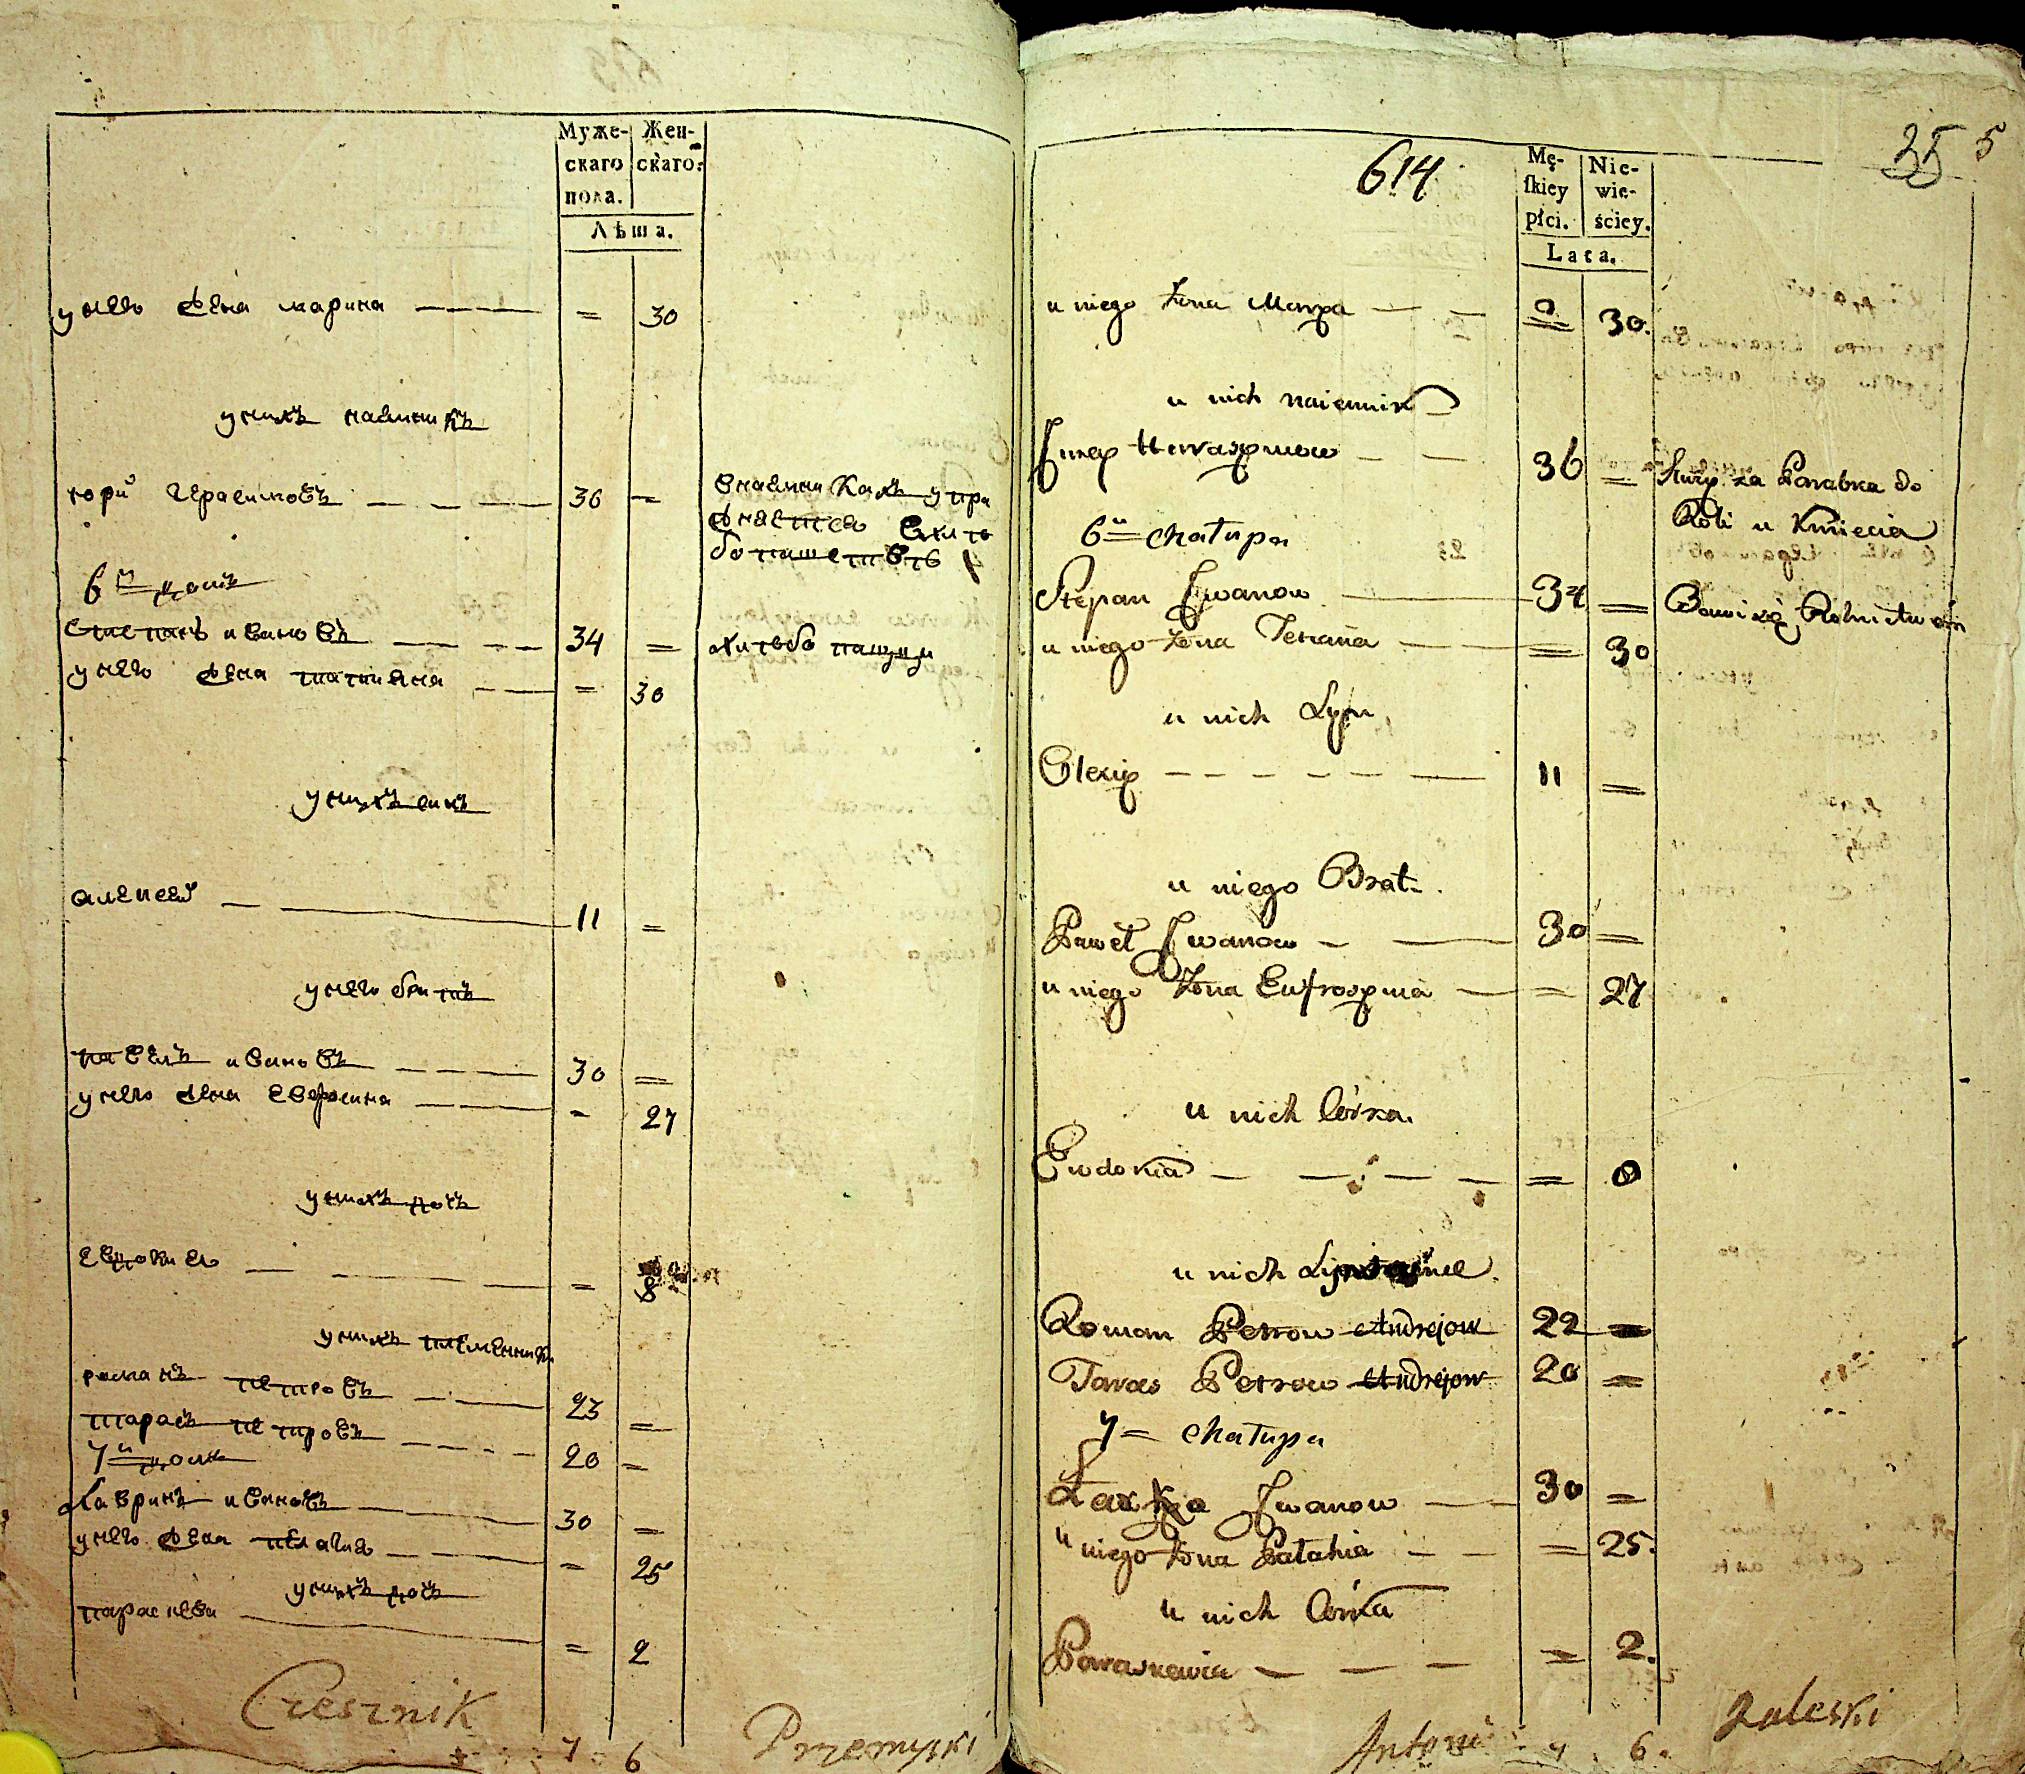 Муже-
скаго
пола.
Жен-
скаго.
Лѣта.
у него жена марина 30
у нихъ наемникъ
юрй герасимовъ 36
внаемникахъ упри
6й домъ
степанъ ивановъ 34
у него жена татияна 30
у нихъ синъ
алексей 11
у него братъ
павелъ ивановъ 30
у него жена евфросина 27
у нихъ дочъ
евдокия 8
у нихъ племенник
романъ петровъ 23
тарасъ петровъ 20
7й домъ
лавринъ ивановъ 30
у него жена пелагия 25
у нихъ дочъ
параскева 2
Czesznik
7 6
Przemyski
614
35 5
Mę-
skiey
płci.
Nie-
wie-
ściey.
Lata.
u niego Żona Maryna 0 30.
u nich naiemnik
36 Służy za Parobka do
Roli u Kmiecia
6ta chałupa
Stepan Jwanow 34
u niego żona Tetiana 30
u nich Syn
Olexiy 11
u niego Brat
Paweł Jwanow 30
u niego Żona Eufrozyna 27
u nich Córka.
Ewdokia 8
u nich
Roman Petrow Andrejow 22
Taras Petrow Andrejow 20
7 chałupa
Jwanow 30
u niego żona Pałahia 25.
u nich Córka
Paraskewia 2.
Antoni 7 6.
Zaleski